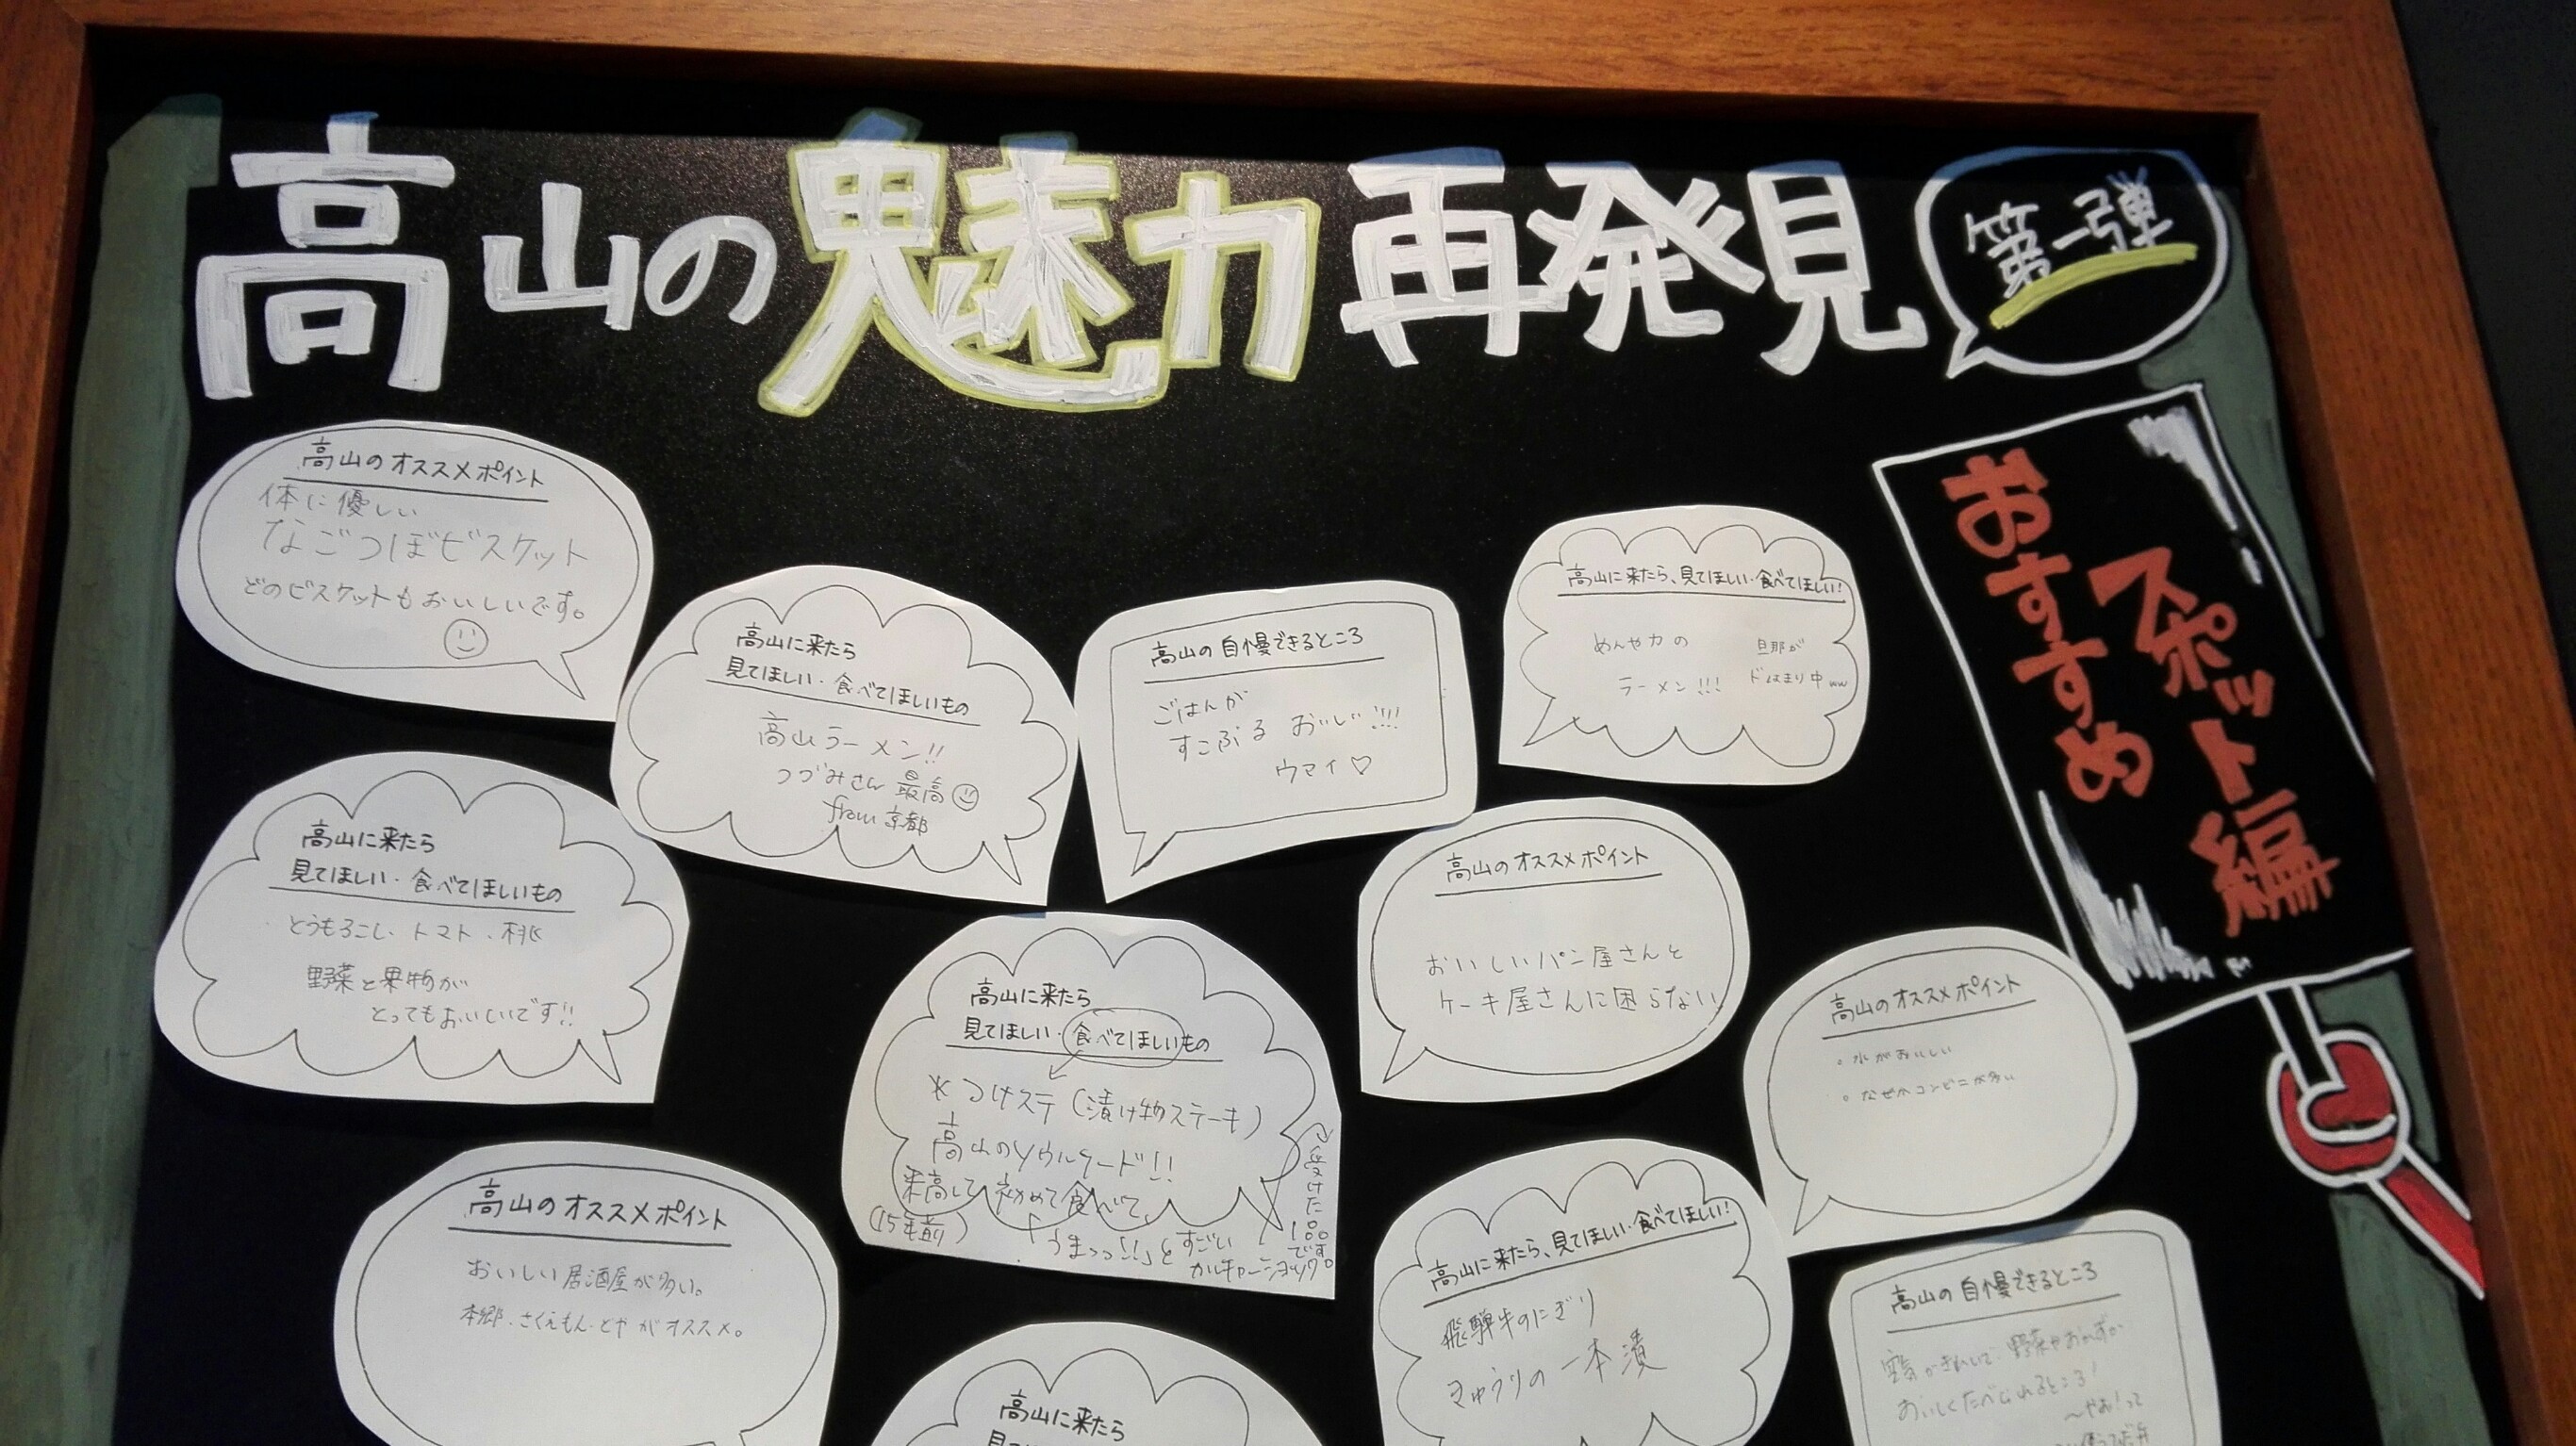 高山の魅力再発見
第一弾
おすすめ
スポット編
高山のオススメポイント
体に優しい
なごつぼビスケット
どのビスケットもおいしいです。
高山に来たら
見てほしい・食べてほしいもの
高山ラーメン!!
つづみさん 最高
from 京都
高山の自慢できるところ
ごはんが
すこぶる おいしい!!!
ウマイ♡
高山に来たら、見てほしい・食べてほしい!
めんや力の
ラーメン!!!
旦那が
ドはまり中ww
高山に来たら
見てほしい・食べてほしいもの
とうもろこし、トマト、桃
野菜と果物が
とってもおいしいです!!
高山に来たら
見てほしい・食べてほしいもの
* つけステ (漬け物ステーキ)
高山のソウルフード!!
来高して初めて食べて、
(15年前)
「うまっっ!!」とすごい
カルチャーショック
受けた
1品
です。
高山のオススメポイント
おいしいパン屋さんと
ケーキ屋さんに困らない
高山のオススメポイント
。水がおいしい
。なぜかコンビニが多い
高山のオススメポイント
おいしい居酒屋が多い。
本郷、さくえもん、とや がオススメ。
高山に来たら、見てほしい・食べてほしい!
飛騨牛のにぎり
きゅうりの一本漬
高山の自慢できるところ
空気がきれいで、野菜やおかずが
おいしくたべられるところ!
高山に来たら